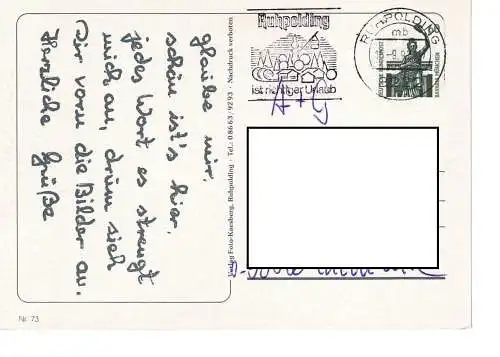 glaube mir,
schön ist's hier,
jedes Wort es strengt
mich an, drum sieh
Dir vorn die Bilder an.
Herzliche Grüße
Verlag Foto-Karsberg, Ruhpolding · Tel.: 08663/9293 · Nachdruck verboten
Ruhpolding
ist richtiger Urlaub
RUHPOLDING
mb
A + G
Nr. 73